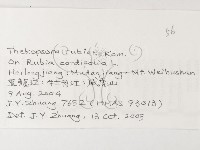 56
Thekopsora rubiae Kom.
On Rubia cordifolia L.
Heilongjiang: Mudanjiang, Mt. Weihushan
黑龙江: 牡丹江,
9 Aug. 2004
J.Y. Zhuang 7652 (HMAS 93013)
Det. J.Y. Zhuang, 13 Oct. 2005